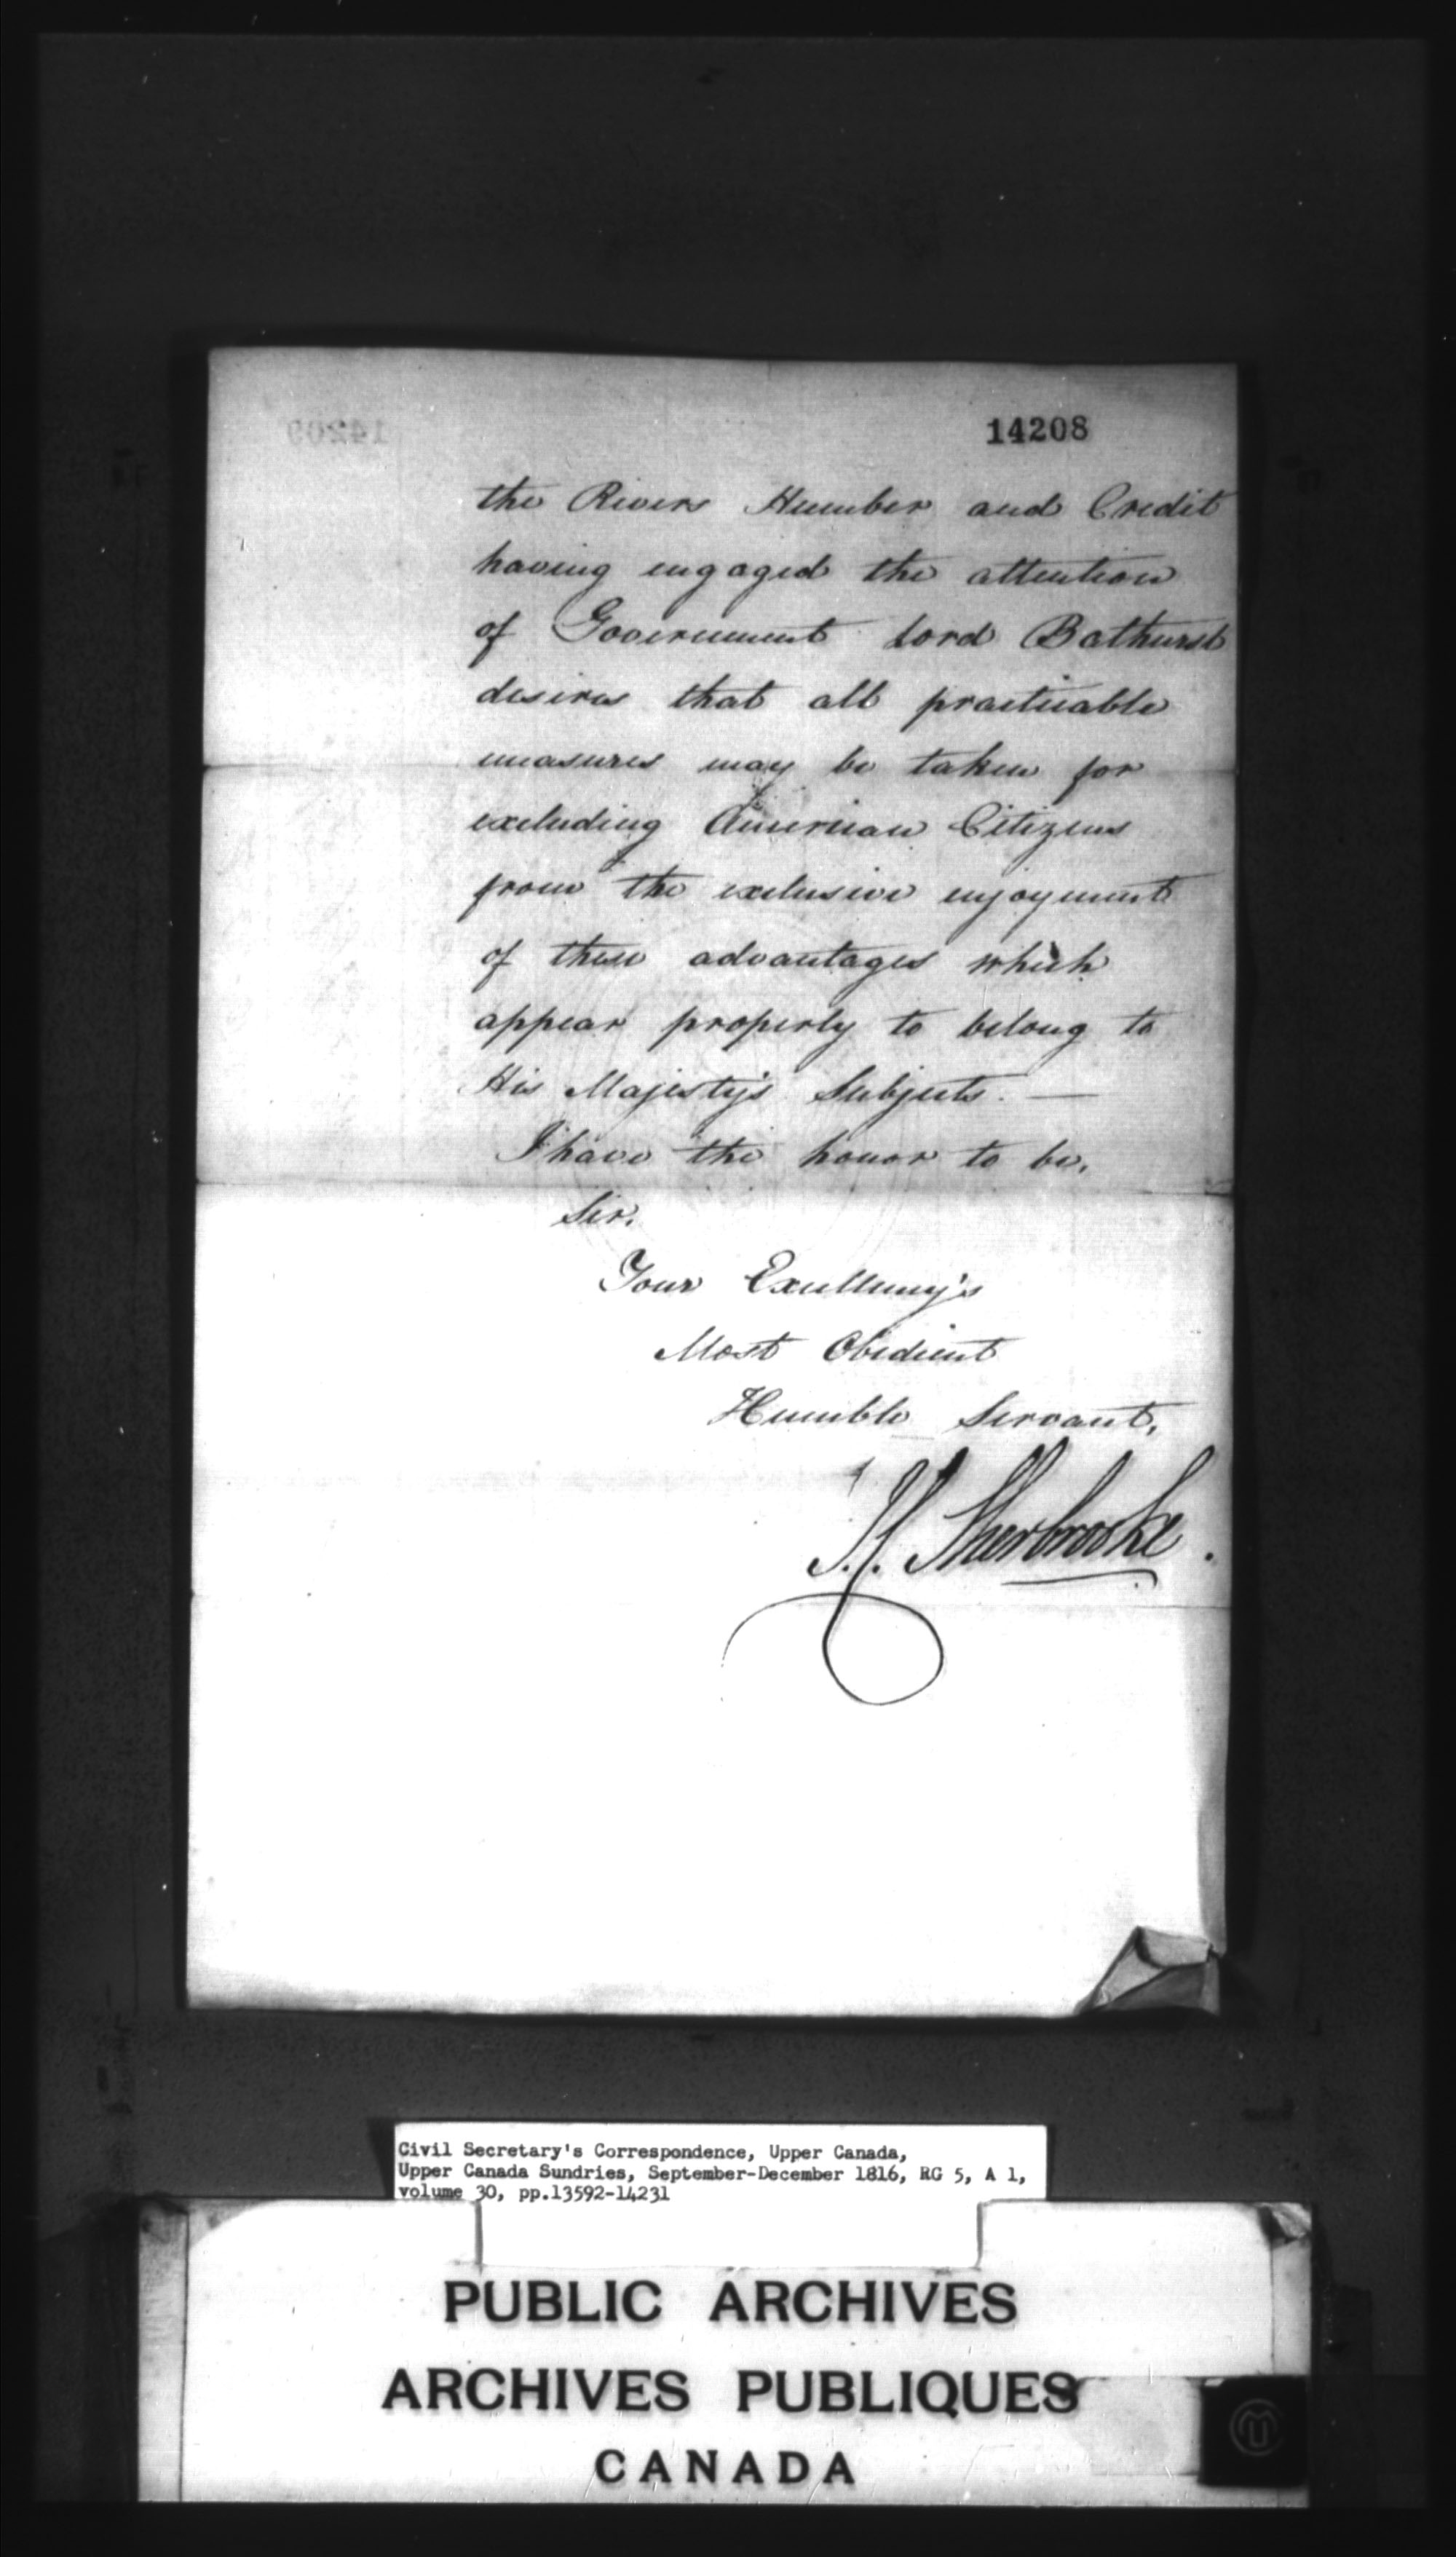 14208
the Rivers Humber and Credit
having engaged the attention
of Government Lord Bathurst
desires that all practicable
measures may be taken for
excluding American Citizens
from the exclusive enjoyment
of these advantages which
appear properly to belong to
His Majesty's Subjects. —
I have the honor to be,
Sir,
Your Excellency's
Most Obedient
Humble Servant,
J.C. Sherbrooke.
Civil Secretary's Correspondence, Upper Canada,
Upper Canada Sundries, September-December 1816, RG 5, A 1,
volume 30, pp.13592-14231
PUBLIC ARCHIVES
ARCHIVES PUBLIQUES
CANADA